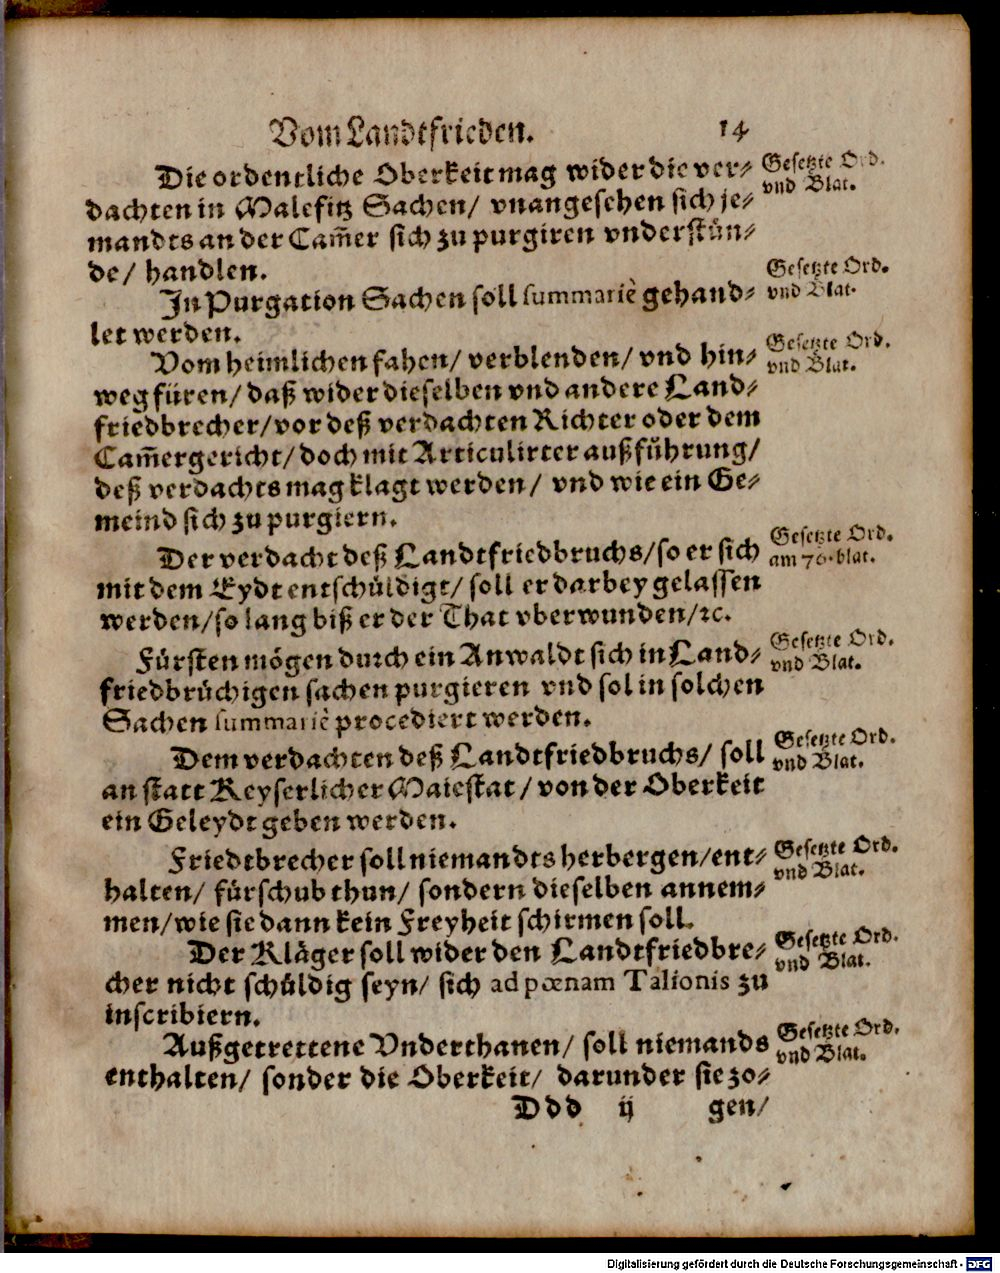 Vom Landtfrieden. 14
Die ordentliche Oberkeit mag wider die ver⸗
dachten in Malefitz Sachen/ vnangesehen sich je⸗
mandts an der Cam̃er sich zu purgiren vnderstün⸗
de/ handlen.
Gesetzte Ord.
vnd Blat.
In Purgation Sachen soll summariè gehand⸗
let werden.
Gesetzte Ord.
vnd Blat.
Vom heimlichen fahen/ verblenden/ vnd hin⸗
weg füren/ daß wider dieselben vnd andere Land⸗
friedbrecher/ vor deß verdachten Richter oder dem
Cam̃ergericht/ doch mit Articulirter außführung/
deß verdachts mag klagt werden/ vnd wie ein Ge⸗
meind sich zu purgiern.
Gesetzte Ord.
vnd Blat.
Der verdacht deß Landtfriedbruchs/ so er sich
mit dem Eydt entschüldigt/ soll er darbey gelassen
werden/ so lang biß er der That vberwunden/ ꝛc.
Gesetzte Ord.
am 76. blat.
Fürsten mögen durch ein Anwaldt sich in Land⸗
friedbrüchigen sachen purgieren vnd sol in solchen
Sachen summariè procediert werden.
Gesetzte Ord.
vnd Blat.
Dem verdachten deß Landtfriedbruchs/ soll
an statt Keyserlicher Maiestat/ von der Oberkeit
ein Geleydt geben werden.
Gesetzte Ord.
vnd Blat.
Friedtbrecher soll niemandts herbergen/ ent⸗
halten/ fürschub thun/ sondern dieselben annem⸗
men/ wie sie dann kein Freyheit schirmen soll.
Gesetzte Ord.
vnd Blat.
Der Kläger soll wider den Landtfriedbre⸗
cher nicht schüldig seyn/ sich ad pœnam Talionis zu
inscribiern.
Gesetzte Ord.
vnd Blat.
Außgetrettene Vnderthanen/ soll niemands
enthalten/ sonder die Oberkeit/ darunder sie zo⸗
Gesetzte Ord.
vnd Blat.
Ddd ij gen/
Digitalisierung gefördert durch die Deutsche Forschungsgemeinschaft - DFG